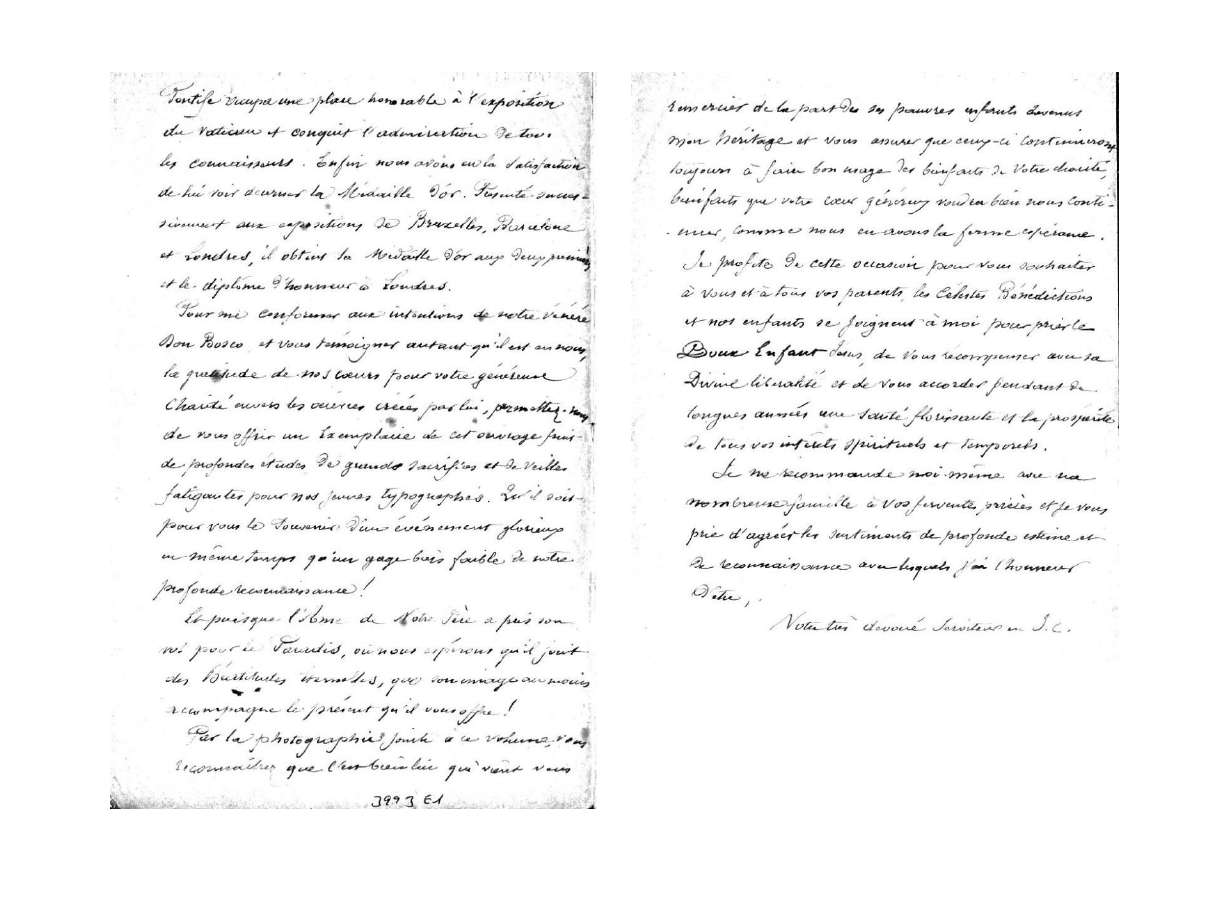 Pontife occupa une place honorable à l'exposition
du Vatican et conquit l'admiration de tous
les connaisseurs. Enfin nous avons eu la satisfaction
de lui voir décerner la Médaille d'or. Présenté succes-
sivement aux expositions de Bruxelles, Barcelone
et Londres, il obtint la Médaille d'or aux deux premières
et le diplôme d'honneur à Londres.
Pour me conformer aux intentions de notre vénéré
Don Bosco et vous témoigner autant qu'il est en nous,
la gratitude de nos cœurs pour votre généreuse
Charité envers les œuvres créées par lui, permettez-nous
de vous offrir un Exemplaire de cet ouvrage fruit
de profondes études de grands sacrifices et de veilles
fatigantes pour nos jeunes typographes. Qu'il soit
pour vous le Souvenir d'un événement glorieux
en même temps qu'un gage bien faible de notre
profonde reconnaissance!
Et puisque l'Ame de Notre Père a pris son
vol pour le Paradis, où nous espérons qu'il jouit
des Béatitudes éternelles, que son image au moins
accompagne le présent qu'il vous offre!
Par la photographie jointe à ce volume, vous
reconnaîtrez que c'est bien lui qui vient vous
3993 E1
remercier de la part de ses pauvres enfants devenus
mon héritage et vous assurer que ceux-ci continueront
toujours à faire bon usage des bienfaits de votre charité,
bienfaits que votre cœur généreux voudra bien nous conti-
-nuer, comme nous en avons la ferme espérance.
Je profite de cette occasion pour vous souhaiter
à vous et à tous vos parents, les Célestes Bénédictions
et nos enfants se joignent à moi pour prier le
Doux Enfant Jésus, de vous récompenser avec sa
Divine libéralité et de vous accorder pendant de
longues années une santé florissante et la prospérité
de tous vos intérêts spirituels et temporels.
Je me recommande moi-même avec ma
nombreuse famille à vos ferventes prières et je vous
prie d'agréer les sentiments de profonde estime et
de reconnaissance avec lesquels j'ai l'honneur
d'être,
Votre très dévoué Serviteur en J.C.